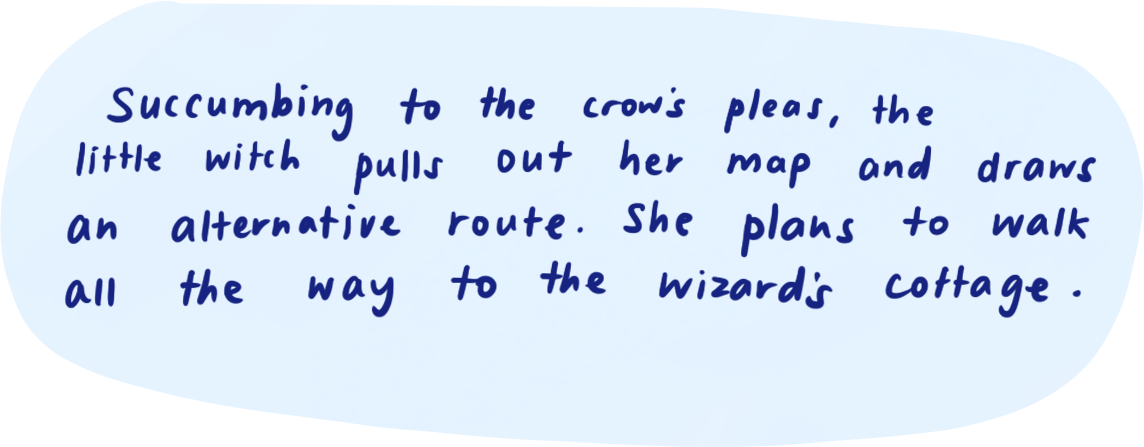 Succumbing to the crow's pleas, the
little witch pulls out her map and draws
an alternative route. She plans to walk
all the way to the wizard's cottage.